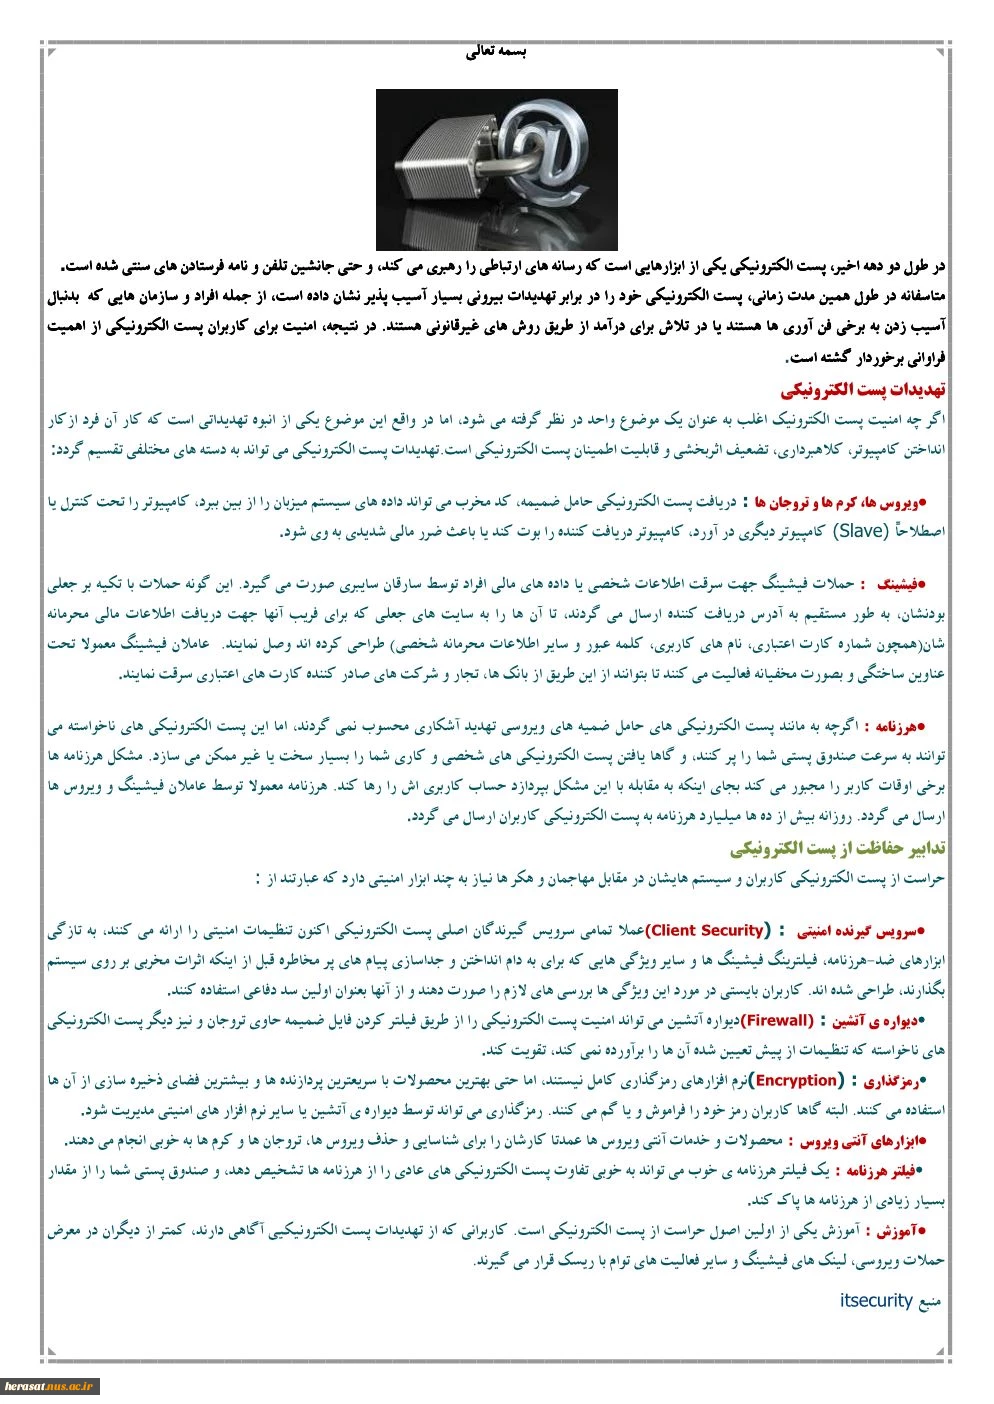 بسمه تعالی
در طول دو دهه اخیر، پست الکترونیکی یکی از ابزارهایی است که رسانه های ارتباطی را رهبری می کند، و حتی جانشین تلفن و نامه فرستادن های سنتی شده است.
متاسفانه در طول همین مدت زمانی، پست الکترونیکی خود را در برابر تهدیدات بیرونی بسیار آسیب پذیر نشان داده است، از جمله افراد و سازمان هایی که بدنبال
آسیب زدن به برخی فن آوری ها هستند یا در تلاش برای درآمد از طریق روش های غیرقانونی هستند. در نتیجه، امنیت برای کاربران پست الکترونیکی از اهمیت
فراوانی برخوردار گشته است.
تهدیدات پست الکترونیکی
اگر چه امنیت پست الکترونیک اغلب به عنوان یک موضوع واحد در نظر گرفته می شود، اما در واقع این موضوع یکی از انبوه تهدیداتی است که کار آن فرد ازکار
انداختن کامپیوتر، کلاهبرداری، تضعیف اثربخشی و قابلیت اطمینان پست الکترونیکی است.تهدیدات پست الکترونیکی می تواند به دسته های مختلفی تقسیم گردد:
•ویروس ها، کرم ها و تروجان ها : دریافت پست الکترونیکی حامل ضمیمه، کد مخرب می تواند داده های سیستم میزبان را از بین ببرد، کامپیوتر را تحت کنترل یا
اصطلاحاً (Slave) کامپیوتر دیگری در آورد، کامپیوتر دریافت کننده را بوت کند یا باعث ضرر مالی شدیدی به وی شود.
•فیشینگ : حملات فیشینگ جهت سرقت اطلاعات شخصی یا داده های مالی افراد توسط سارقان سایبری صورت می گیرد. این گونه حملات با تکیه بر جعلی
بودنشان، به طور مستقیم به آدرس دریافت کننده ارسال می گردند، تا آن ها را به سایت های جعلی که برای فریب آنها جهت دریافت اطلاعات مالی محرمانه
شان(همچون شماره کارت اعتباری، نام های کاربری، کلمه عبور و سایر اطلاعات محرمانه شخصی) طراحی کرده اند وصل نمایند. عاملان فیشینگ معمولا تحت
عناوین ساختگی و بصورت مخفیانه فعالیت می کنند تا بتوانند از این طریق از بانک ها، تجار و شرکت های صادر کننده کارت های اعتباری سرقت نمایند.
•هرزنامه : اگرچه به مانند پست الکترونیکی های حامل ضمیه های ویروسی تهدید آشکاری محسوب نمی گردند، اما این پست الکترونیکی های ناخواسته می
توانند به سرعت صندوق پستی شما را پر کنند، و گاها یافتن پست الکترونیکی های شخصی و کاری شما را بسیار سخت یا غیر ممکن می سازد. مشکل هرزنامه ها
برخی اوقات کاربر را مجبور می کند بجای اینکه به مقابله با این مشکل بپردازد حساب کاربری اش را رها کند. هرزنامه معمولا توسط عاملان فیشینگ و ویروس ها
ارسال می گردد. روزانه بیش از ده ها میلیارد هرزنامه به پست الکترونیکی کاربران ارسال می گردد.
تدابیر حفاظت از پست الکترونیکی
حراست از پست الکترونیکی کاربران و سیستم هایشان در مقابل مهاجمان و هکر ها نیاز به چند ابزار امنیتی دارد که عبارتند از :
•سرویس گیرنده امنیتی : (Client Security)عملا تمامی سرویس گیرندگان اصلی پست الکترونیکی اکنون تنظیمات امنیتی را ارائه می کنند، به تازگی
ابزارهای ضد-هرزنامه، فیلترینگ فیشینگ ها و سایر ویژگی هایی که برای به دام انداختن و جداسازی پیام های پر مخاطره قبل از اینکه اثرات مخربی بر روی سیستم
بگذارند، طراحی شده اند. کاربران بایستی در مورد این ویژگی ها بررسی های لازم را صورت دهند و از آنها بعنوان اولین سد دفاعی استفاده کنند.
•دیواره ی آتشین : (Firewall)دیواره آتشین می تواند امنیت پست الکترونیکی را از طریق فیلتر کردن فایل ضمیمه حاوی تروجان و نیز دیگر پست الکترونیکی
های ناخواسته که تنظیمات از پیش تعیین شده آن ها را برآورده نمی کند، تقویت کند.
•رمزگذاری : (Encryption)نرم افزارهای رمزگذاری کامل نیستند، اما حتی بهترین محصولات با سریعترین پردازنده ها و بیشترین فضای ذخیره سازی از آن ها
استفاده می کنند. البته گاها کاربران رمز خود را فراموش و یا گم می کنند. رمزگذاری می تواند توسط دیواره ی آتشین یا سایر نرم افزار های امنیتی مدیریت شود.
•ابزارهای آنتی ویروس : محصولات و خدمات آنتی ویروس ها عمدتا کارشان را برای شناسایی و حذف ویروس ها، تروجان ها و کرم ها به خوبی انجام می دهند.
•فیلتر هرزنامه : یک فیلتر هرزنامه ی خوب می تواند به خوبی تفاوت پست الکترونیکی های عادی را از هرزنامه ها تشخیص دهد، و صندوق پستی شما را از مقدار
بسیار زیادی از هرزنامه ها پاک کند.
•آموزش : آموزش یکی از اولین اصول حراست از پست الکترونیکی است. کاربرانی که از تهدیدات پست الکترونیکیی آگاهی دارند، کمتر از دیگران در معرض
حملات ویروسی، لینک های فیشینگ و سایر فعالیت های توام با ریسک قرار می گیرند.
منبع itsecurity
herasat.nus.ac.ir